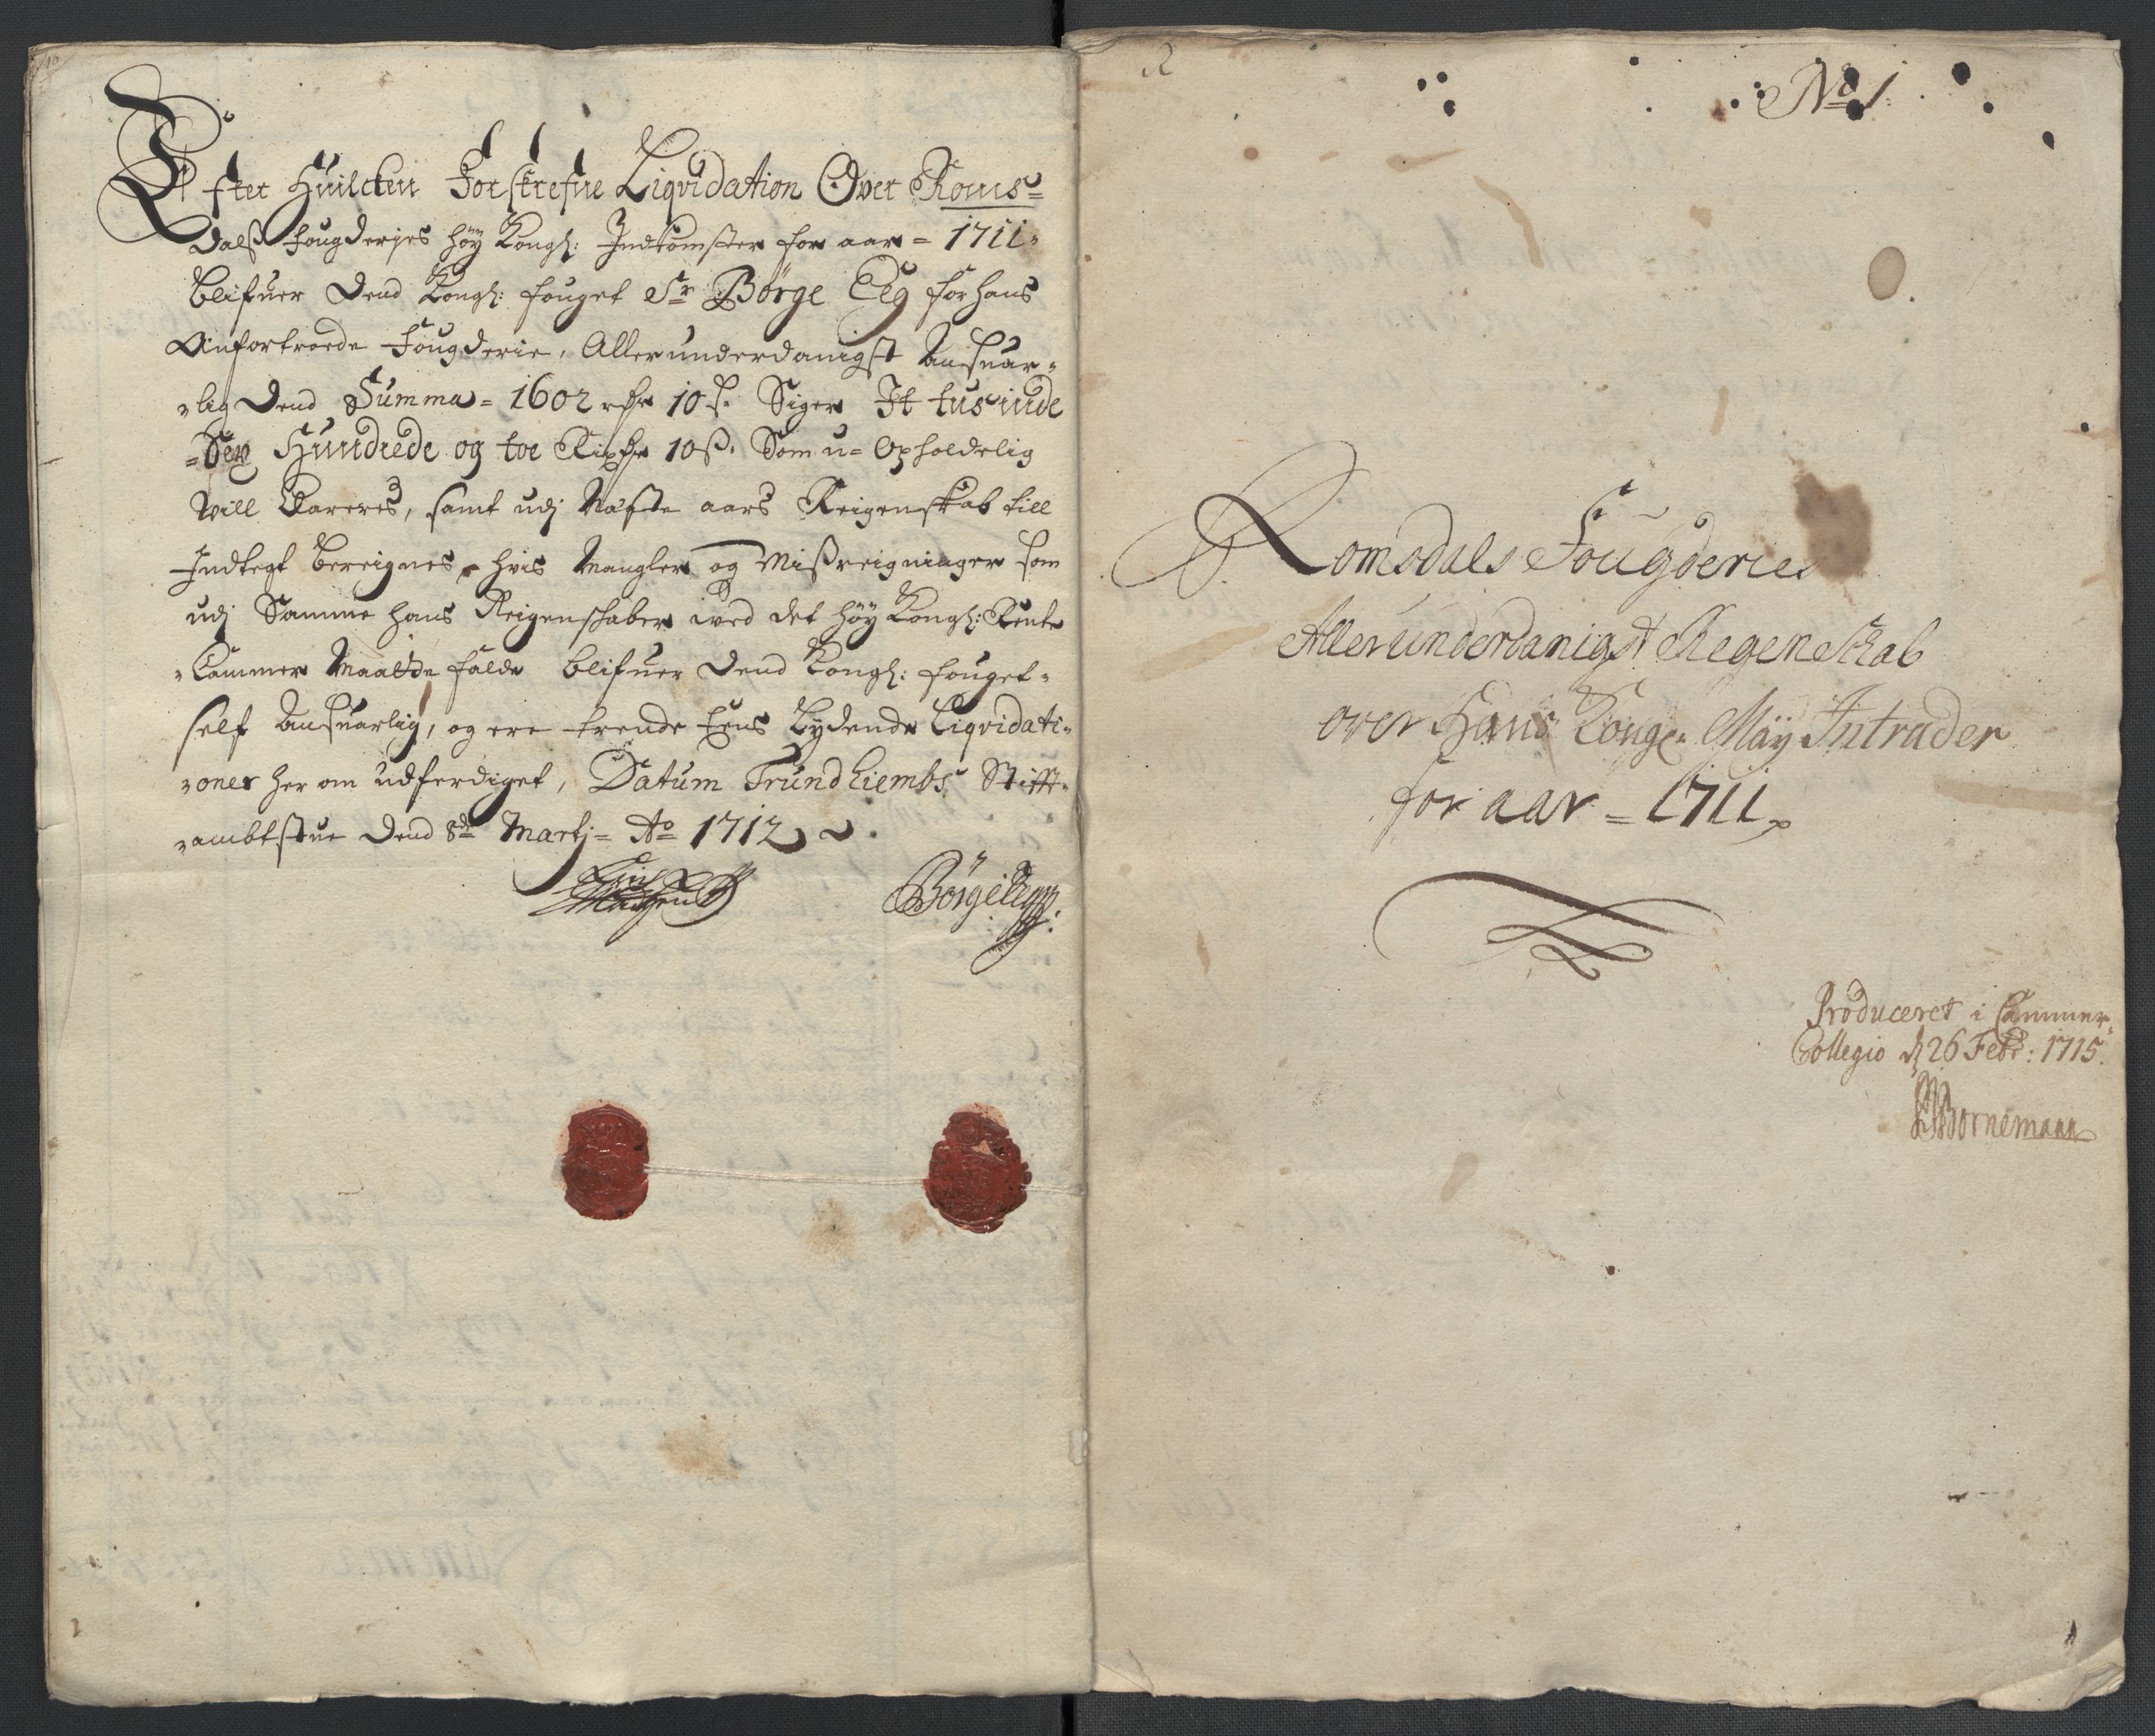 Efter Huilcken Forskrefne Liqvidation Over Roms=
Dalß Fougderjes höÿ Kongl: Indkomster for aar = 1711.
blifuer Dend Kongl: fouget Sr Börge Eeg for hans
Anfortroede Fougderie, Allerunderdanigst Ansuar=
=lig Dend Summa = 1602 rdr 10 ß. Siger It tusinde
=Sex Hundrede og toe Rixdr 10 ß. Som u=Opholdelig
will Clareres, samt udj Næste aars Reigenskab till
Indtegt bereignes, hvis Mangler og Mißreigninger som
udj Samme hans Reigenskaber ved det höÿ Kongl: Rente
=Cammer Maatte falde blifuer Dend Kongl: fouget=
self Ansuarlig, og ere trende Eens Lydende Liqvidati=
=oner her om udferdiget, Datum Trundhiembs Stifft=
=ambtstue Dend 8de Martj = Ao 1712
Börge Eeg
No 1.
Romsdals Fougderies
Allerunderdanigst Regenskab
over Hans Kongl: Maÿ Intrader
for aar = 1711
Produceret i Cammer=
Collegio d 26 Febr: 1715.
Bornemann